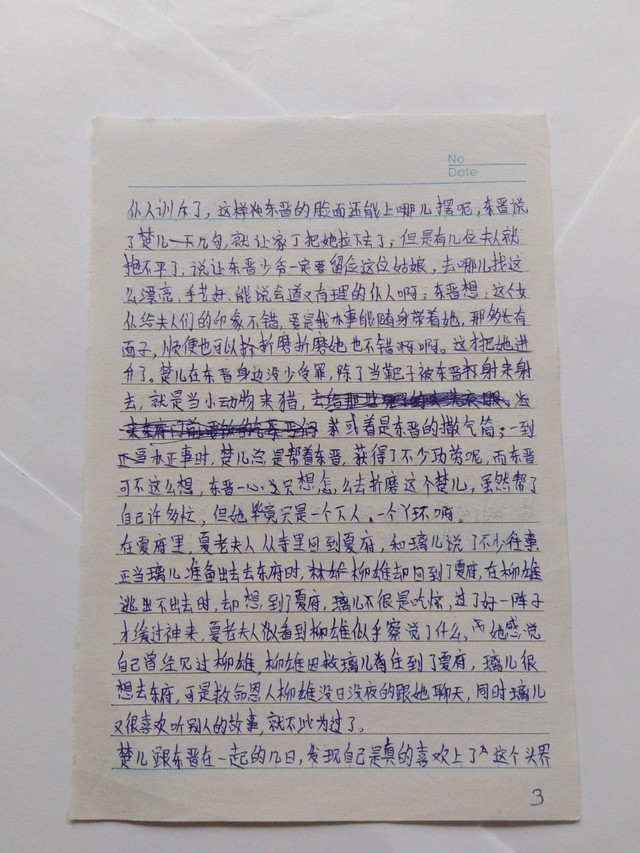 No
Date
仆人训斥了，这样他东晋的脸面还能上哪儿摆呢，东晋说
了楚儿一下几句，就让家丁把她拉下去了；但是有几位夫人就
抱不平了，说让东晋少爷一定要留住这位姑娘，去哪儿找这
么漂亮，手艺好，能说会道又有理的仆人啊；东晋想：这个女
仆给夫人们的印象不错，要是我办事能随身带着她，那多有
面子，顺便也可以折磨折磨她也不错啊啊。这才把她进
了。楚儿在东晋身边没少受罪，除了当靶子被东晋射来射
去，就是当小动物来猎，去
或着是东晋的撒气筒；一到
办正事时，楚儿总是帮着东晋，获得了不少功劳呢，而东晋
可不这么想，东晋一心只想怎么去折磨这个楚儿，虽然帮了
自己许多忙，但她毕竟只是一个下人、一个丫环啊。
在夏府里，夏老夫人从寺里回到夏府，和璃儿说了不少往事
正当璃儿准备出去去东府时，柳雄却回到了夏府，在柳雄
逃出不出去时，却想到了夏府，璃儿不很是吃惊，过了好一阵子
才缓过神来，夏老夫人看到柳雄似乎察觉了什么，她感觉
自己曾经见过柳雄，柳雄因救璃儿有住到了夏府，璃儿很
想去东府，可是救命恩人柳雄没日没夜的跟她聊天，同时璃儿
又很喜欢听别人的故事，就不以为过了。
楚儿跟东晋在一起的几日，发现自己是真的喜欢上了这个
3